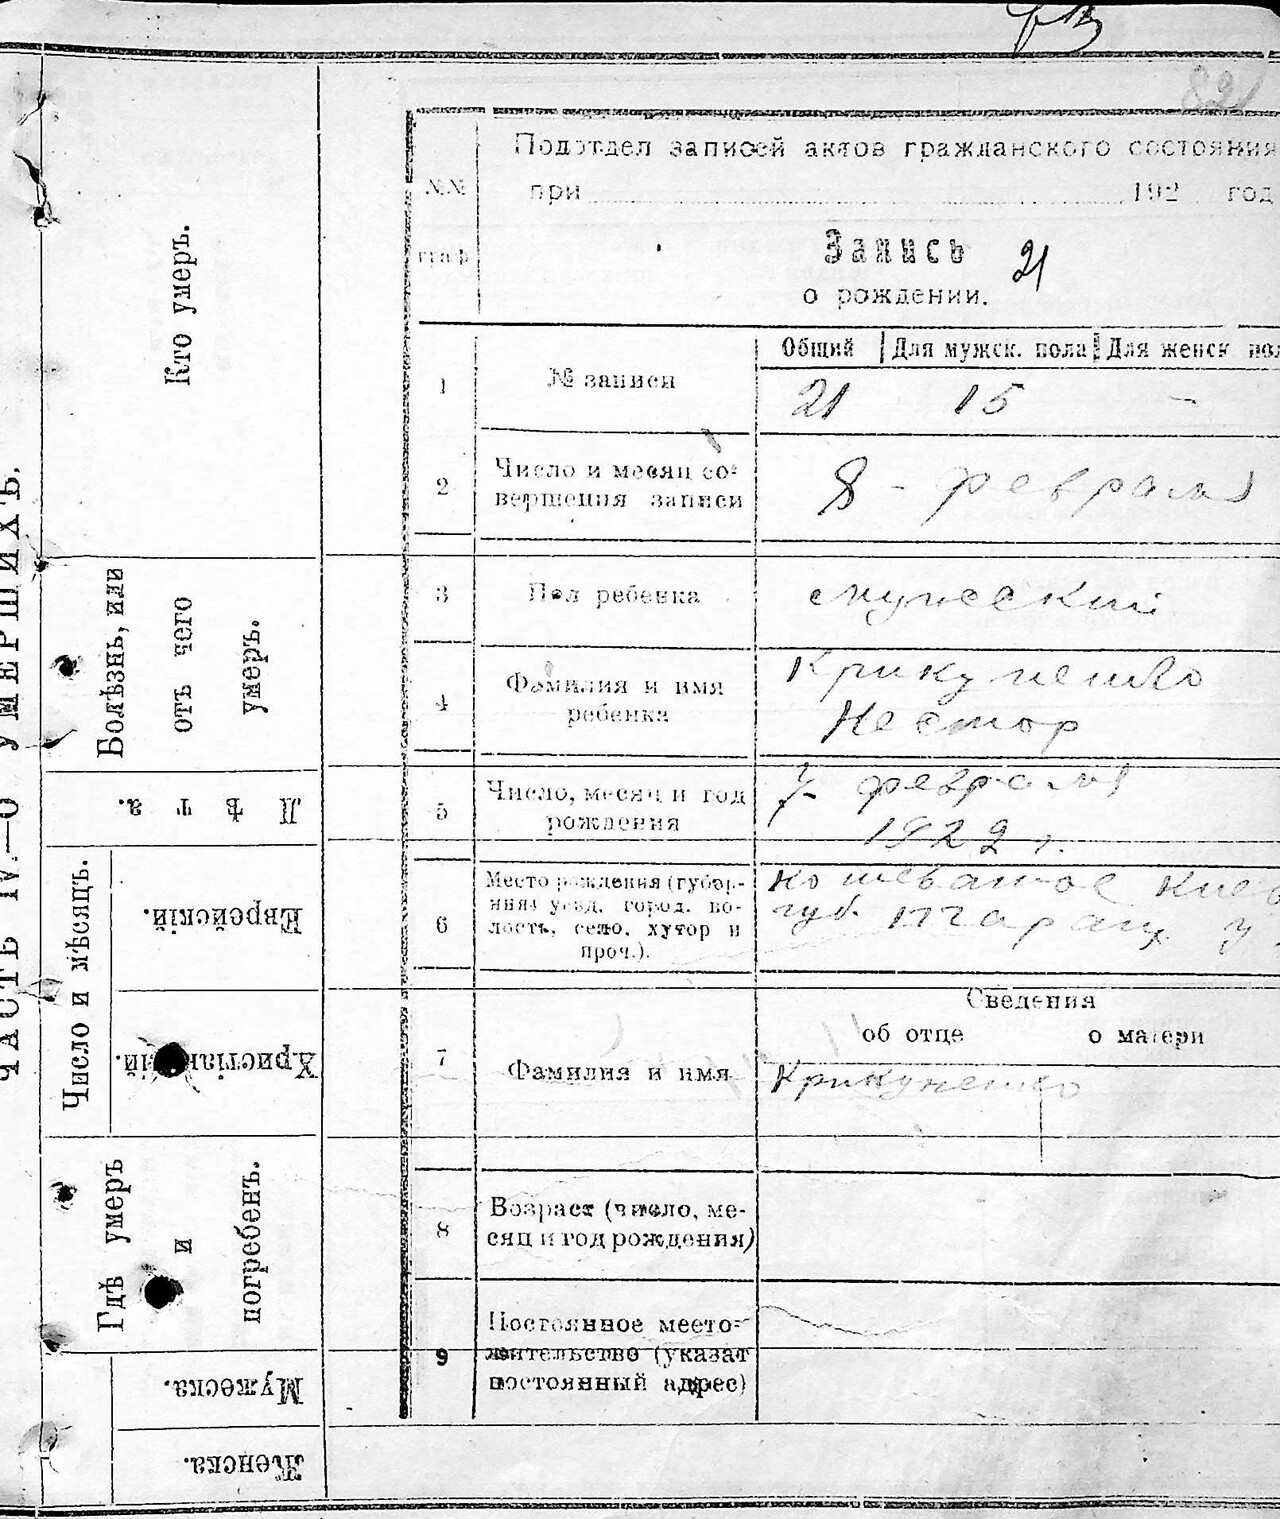 821
Подотдел записей актов гражданского состояния
при 192 год
Запись 21
о рождении.
№№
граф
Общий Для мужск. пола Для женск пол
1 № записи 21 15 -
2 Число и месяц со-
вершения записи 8 - февраля
3 Пол ребенка мужеский
4 Фамилия и имя
ребенка
Крикуненко
Нестор
5 Число, месяц и год
рождения
7 февраля
1922 г.
6 Место рождения (губер-
ния, уезд, город, во-
лость, село, хутор и
проч.).
Кошеватое Киев
губ. Таращ у.
Сведения
об отце о матери
7 Фамилия и имя Крикуненко
8 Возраст (число, ме-
сяц и год рождения)
9 Постоянное место-
жительство (указат
постоянный адрес)
ЧАСТЬ IV.—О УМЕРШИХЪ.
Кто умеръ.
Болѣзнь, или
отъ чего
умеръ.
Лѣта.
Число и мѣсяцъ.
Еврейскій.
Христіанскій.
Гдѣ умеръ
и
погребенъ.
Мужеска.
Женска.